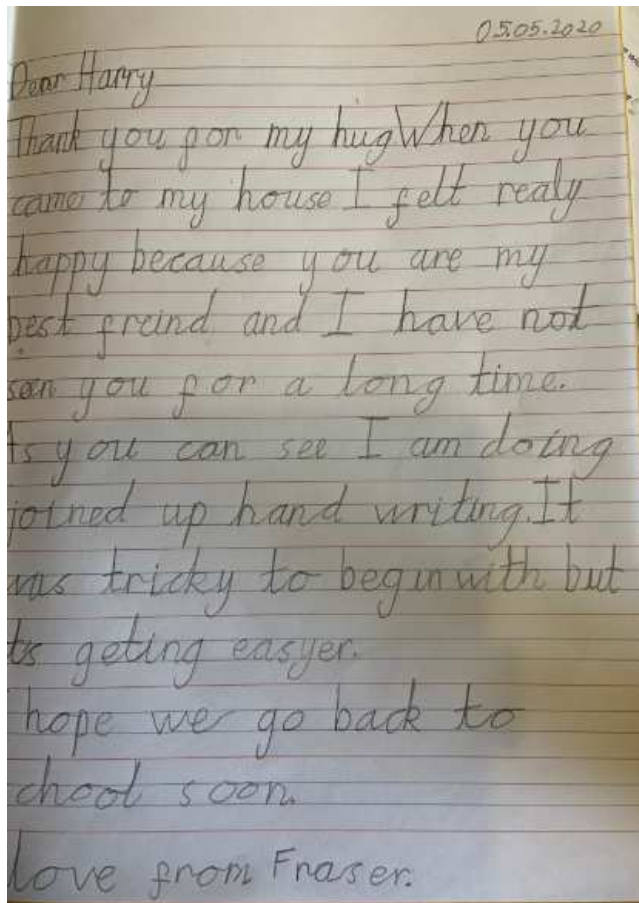 05.05.2020
Dear Harry
Thank you for my hug When you
came to my house I felt realy
happy because you are my
best freind and I have not
sean you for a long time.
As you can see I am doing
joined up hand writing. It
was tricky to begin with but
its geting easyer.
hope we go back to
chool soon.
love from Fraser.